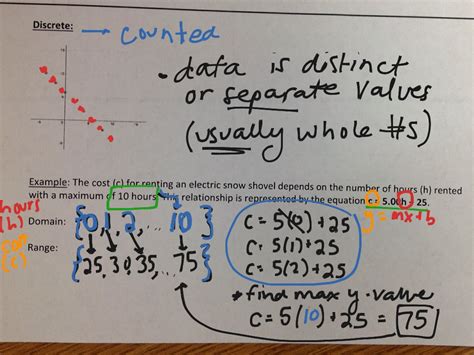 Discrete: → counted
• data is distinct
or separate values
(usually whole #s)
Example: The cost (c) for renting an electric snow shovel depends on the number of hours (h) rented
with a maximum of 10 hours. This relationship is represented by the equation c = 5.00h + 25.
y = mx+b
hours
(h)
Domain: {0, 1, 2, ... 10}
cost
(c)
Range: {25, 30, 35, ... 75}
c = 5(0) + 25
c = 5(1) + 25
c = 5(2) + 25
* find max y-value
c = 5(10) + 25 = 75